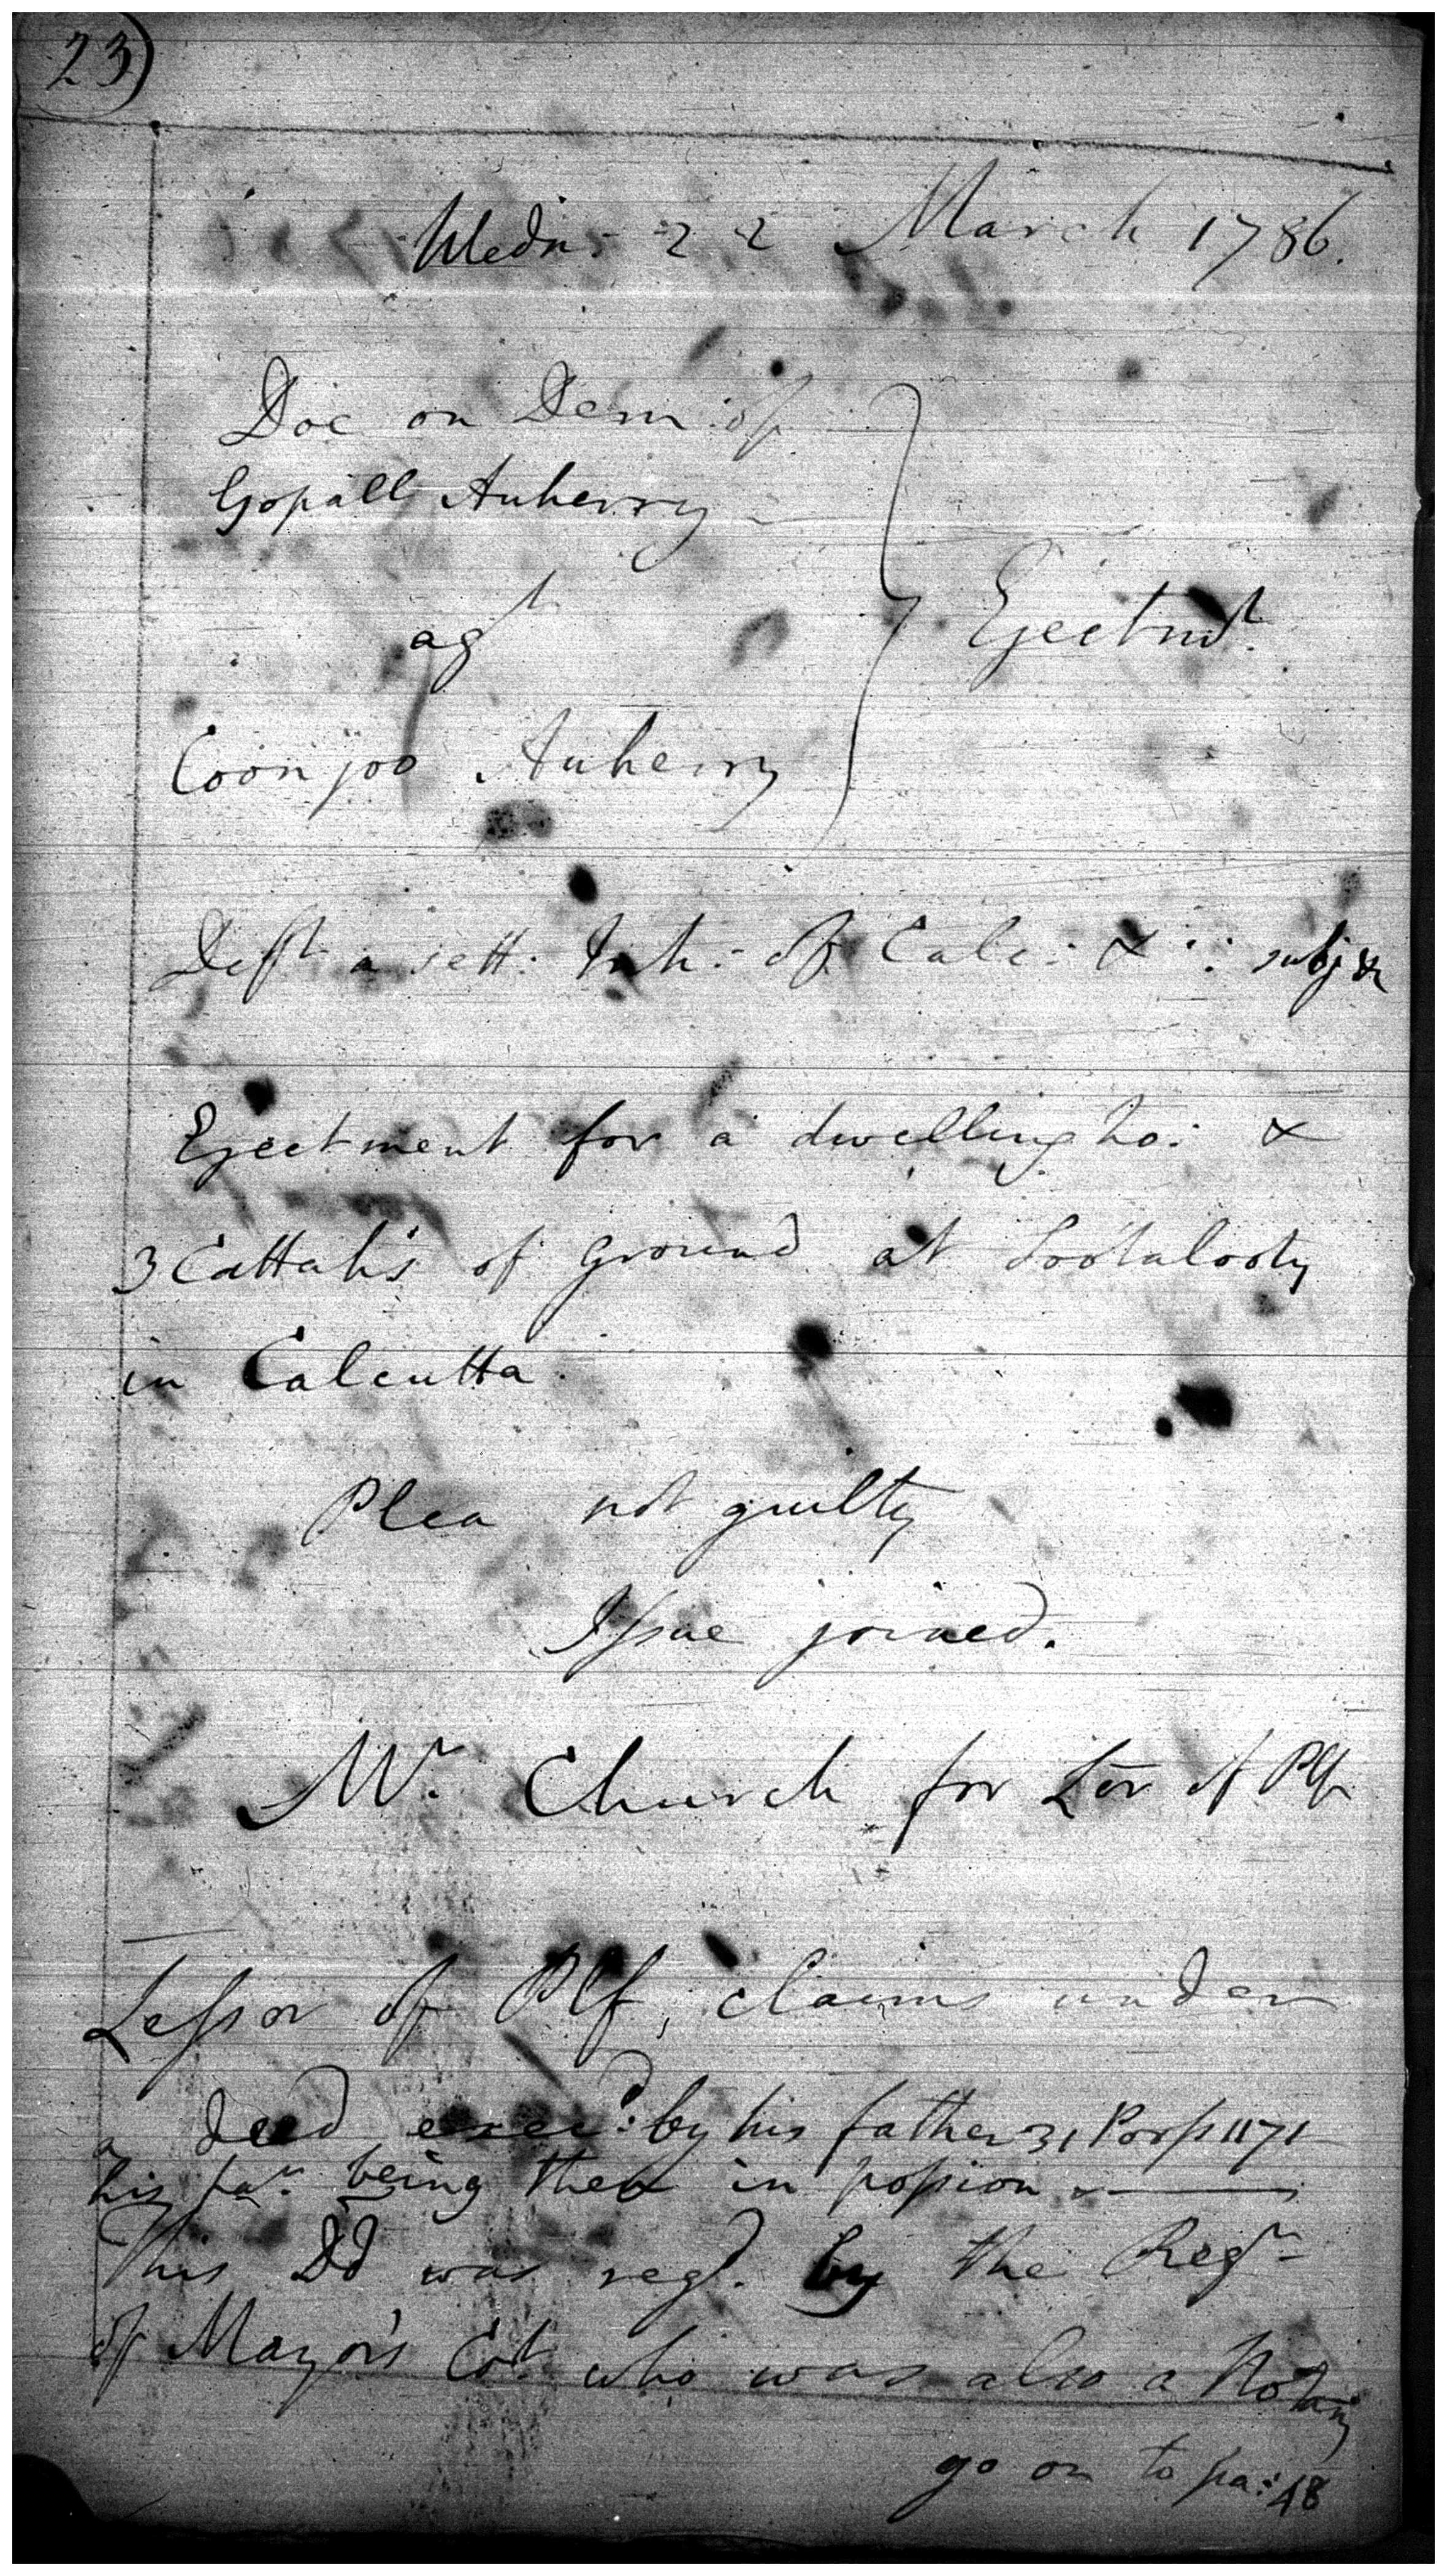 23)
Wedn- 22 March 1786.
Doe on Dem: of
Gopall Auherry
agt
Ejectmt.
Coonjoo Auherry
Deft a sett: Inh: of Calc: & : subj &
Ejectment for a dwelling ho: &
3 Cattahs of ground at Sootalooty
in Calcutta.
Plea not guilty
Issue joined.
Mr. Church for Lor of Plf
Lessor of Plf, claims under
a deed execd: by his father 31 Poos 1171
his far. being then in possion &
This Dd was regd. by the Regr
of Mayor's Cot. who was also a Notary
go on to pa: 48